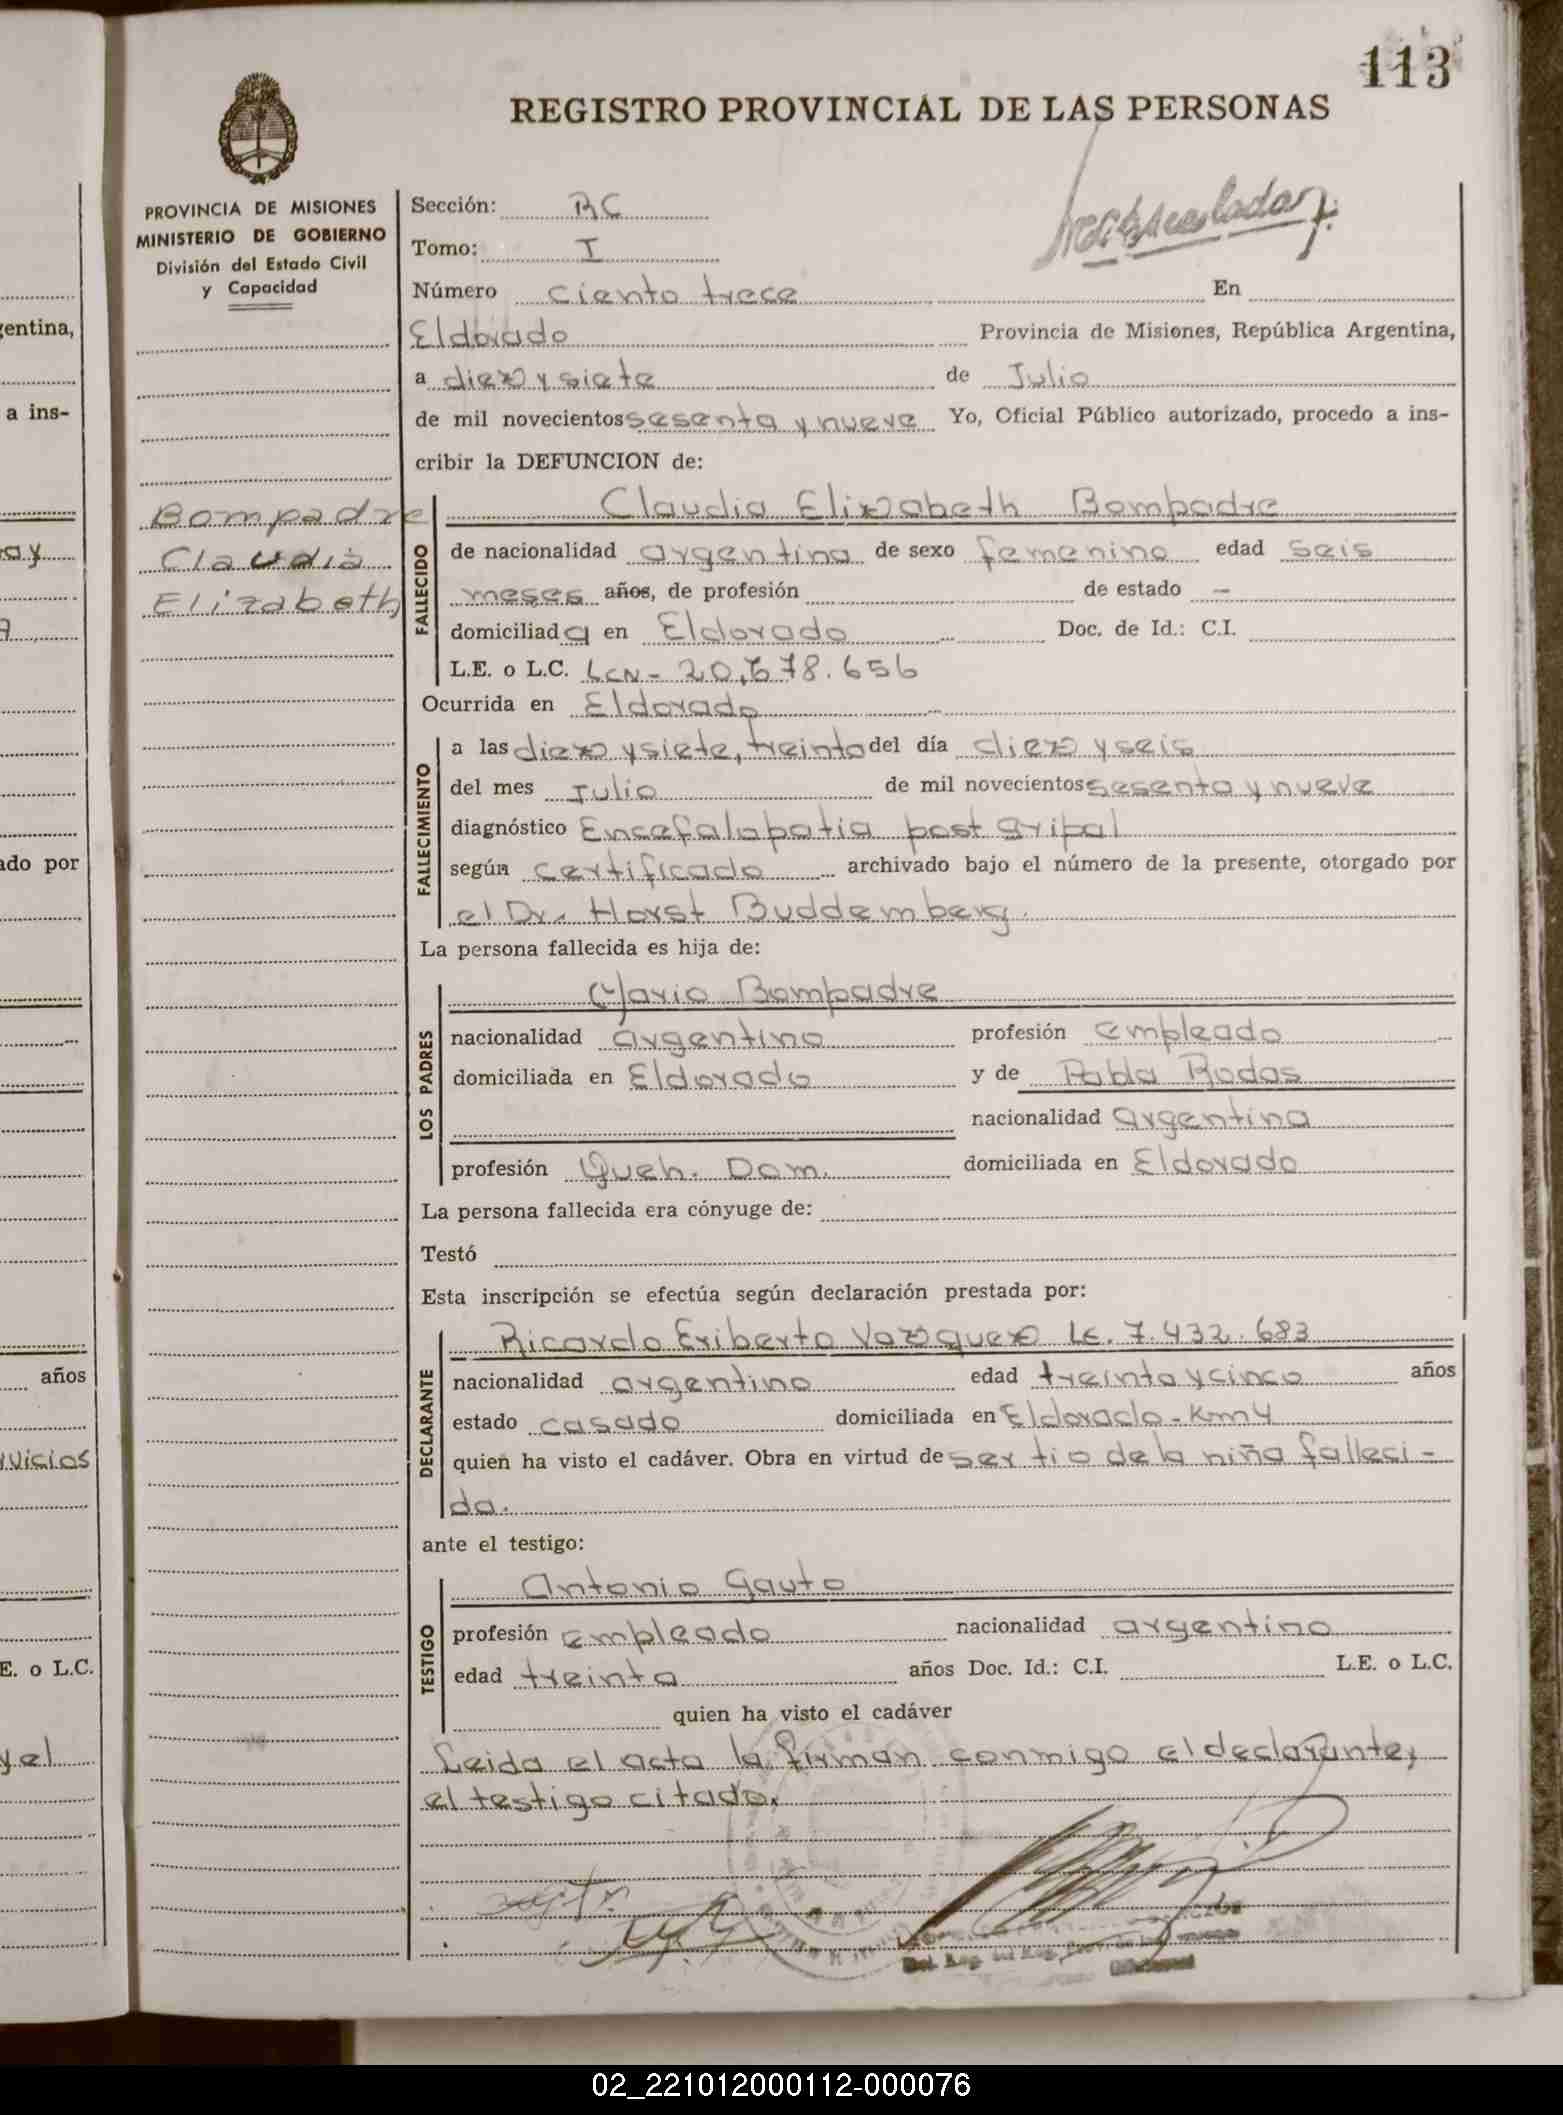 113
REGISTRO PROVINCIAL DE LAS PERSONAS
PROVINCIA DE MISIONES
MINISTERIO DE GOBIERNO
División del Estado Civil
y Capacidad
Bompadre
Claudia
Elizabeth
Sección: RC
Tomo: I
Número ciento trece En
Eldorado Provincia de Misiones, República Argentina,
a diez y siete de Julio
de mil novecientos sesenta y nueve Yo, Oficial Público autorizado, procedo a ins-
cribir la DEFUNCION de:
FALLECIDO
Claudia Elizabeth Bompadre
de nacionalidad argentina de sexo femenino edad seis
meses años, de profesión de estado —
domiciliada en Eldorado Doc. de Id.: C.I.
L.E. o L.C. LCN- 20.678.656
Ocurrida en Eldorado
FALLECIMIENTO
a las diez y siete, treinta del día diez y seis
del mes Julio de mil novecientos sesenta y nueve
diagnóstico Encefalopatia post gripal
según certificado archivado bajo el número de la presente, otorgado por
el Dr. Horst Buddemberg.
La persona fallecida es hija de:
LOS PADRES
Mario Bompadre
nacionalidad argentino profesión empleado
domiciliada en Eldorado y de Pabla Rodas
nacionalidad argentina
profesión Queh. Dom. domiciliada en Eldorado
La persona fallecida era cónyuge de:
Testó
Esta inscripción se efectúa según declaración prestada por:
DECLARANTE
Ricardo Eriberto Vazquez LE. 7.432.683
nacionalidad argentino edad treinta y cinco años
estado casado domiciliada en Eldorado-Km4
quien ha visto el cadáver. Obra en virtud de ser tio de la niña falleci-
da.
ante el testigo:
TESTIGO
Antonio Gauto
profesión empleado nacionalidad argentino
edad treinta años Doc. Id.: C.I. L.E. o L.C.
quien ha visto el cadáver
Leida el acta la firman conmigo el declarante,
el testigo citado.
entina,
a ins-
ay
ado por
años
vicios
E. o L.C.
y el
02_221012000112-000076